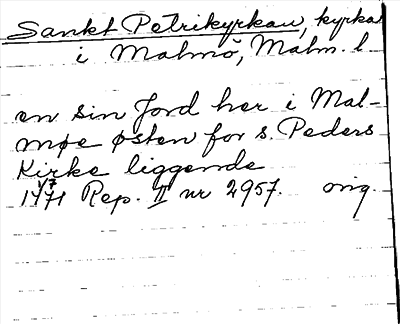 Sankt Petrikyrkan, kyrka
i Malmö, Malm. l
en sin Jord her i Mal-
møe østen for s. Peders
Kirke liggende
1/7
1471 Rep. II nr 2957. orig.